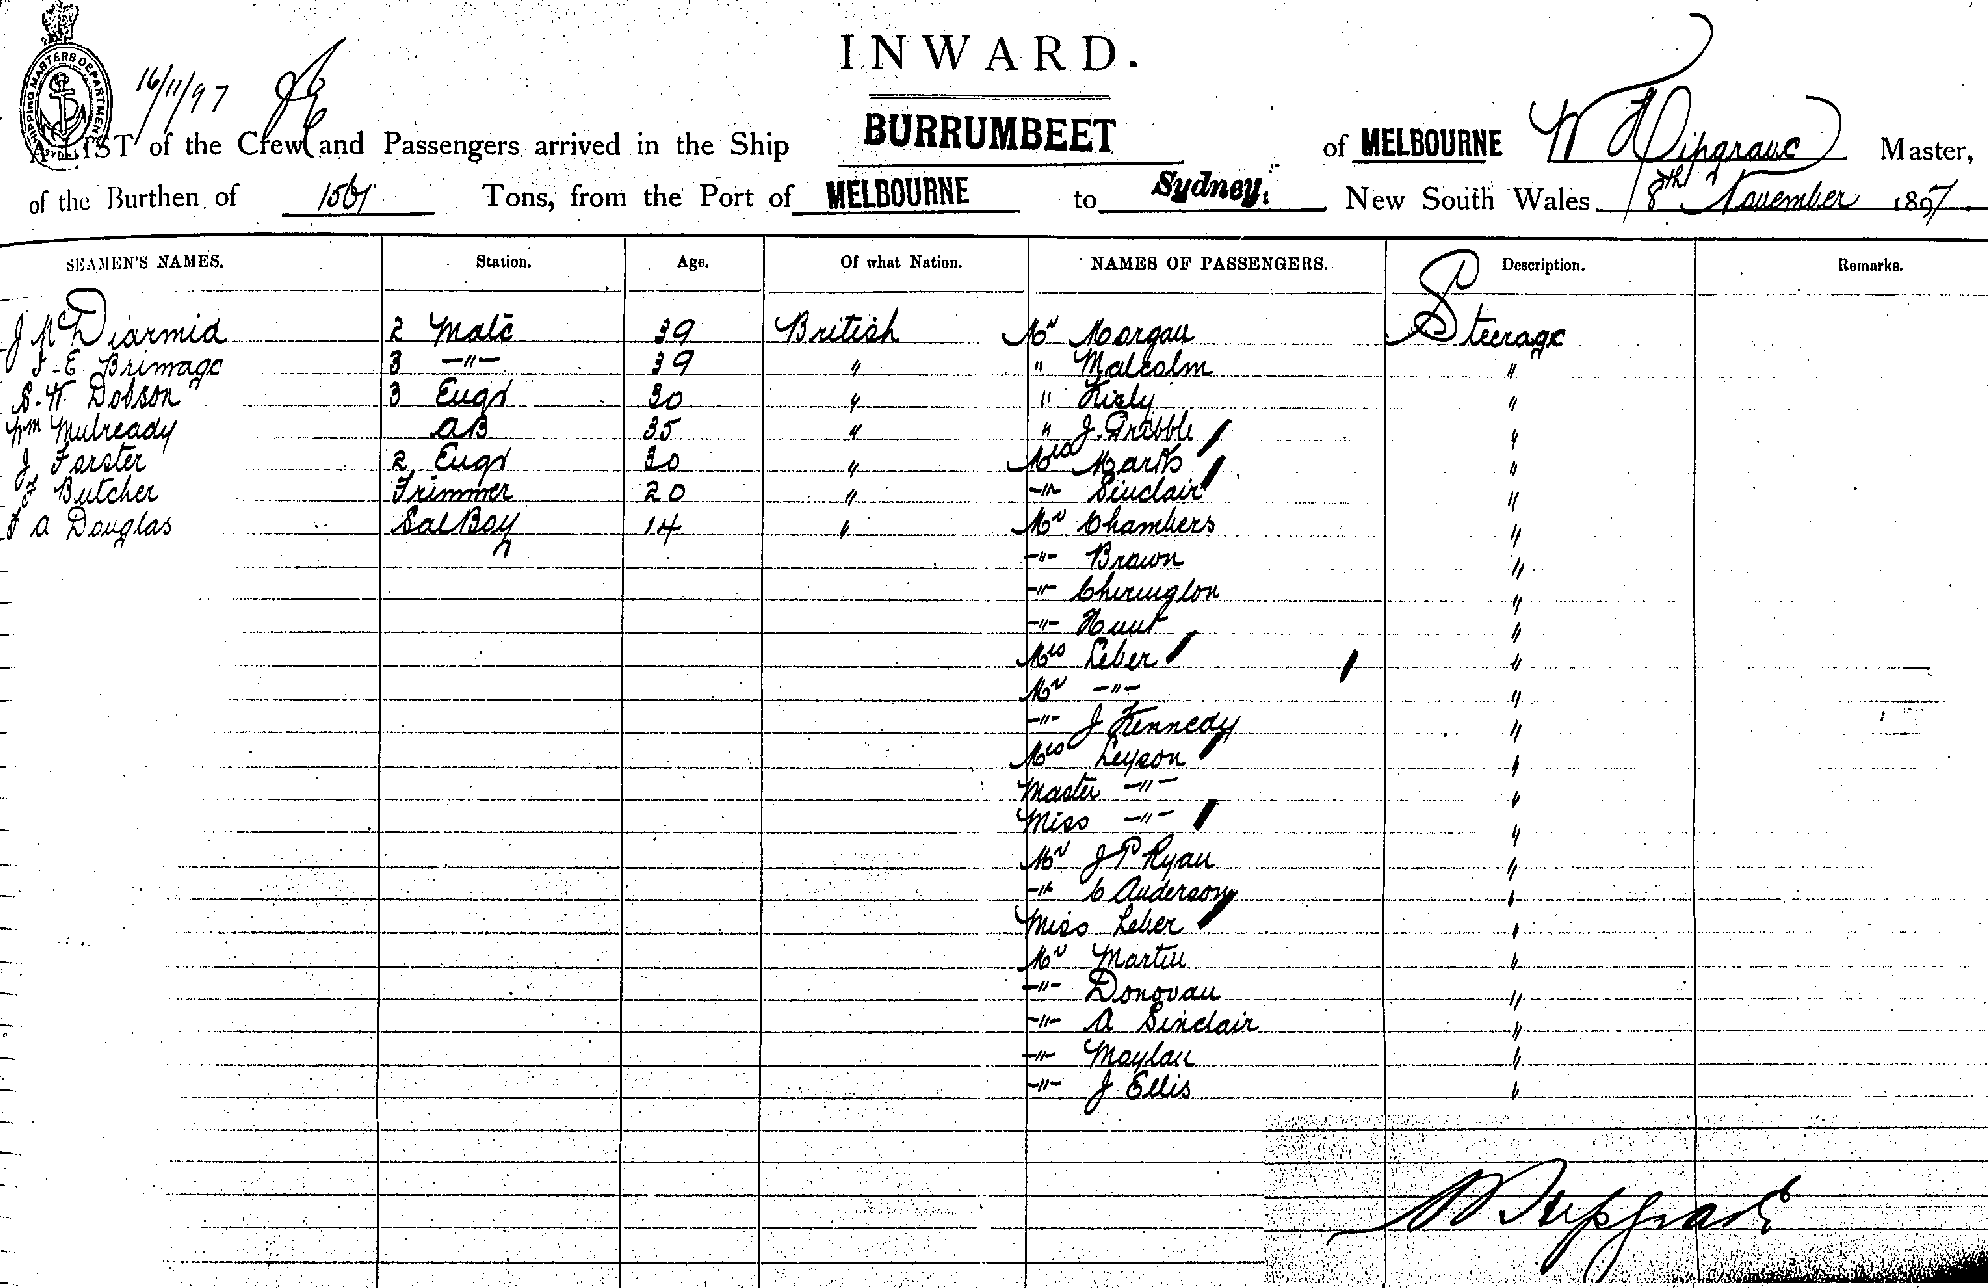 INWARD.
SHIPPING MASTERS DEPARTMENT SYDNEY
16/11/97
A LIST of the Crew and Passengers arrived in the Ship BURRUMBEET of MELBOURNE W Master,
of the Burthen of Tons, from the Port of MELBOURNE to Sydney, New South Wales 8th November 1897
SEAMEN'S NAMES. Station. Age. Of what Nation. NAMES OF PASSENGERS. Description. Remarks.
J McDiarmid 2 Mate 39 British Mr Morgan Steerage
F. E Brimage 3 —"— 39 " " Malcolm "
S. W Dobson 3 Engr 30 " " Kiely "
Wm Mulready AB 35 " " J. Dribble "
J Forster 2 Engr 30 " Mrs Marks "
F Butcher Trimmer 20 " —"— Sinclair "
A Douglas Sal Boy 14 " Mr Chambers "
—"— Brown "
—"— Cherington "
—"— Hunt "
Mrs Leber "
Mr —"— "
—"— J Kennedy "
Mrs Leyson "
Master —"— "
Miss —"— "
Mr J P Ryan "
—"— C Anderson "
Miss Leber "
Mr Martin "
—"— Donovan "
—"— A Sinclair "
—"— Moylan "
—"— J Ellis "